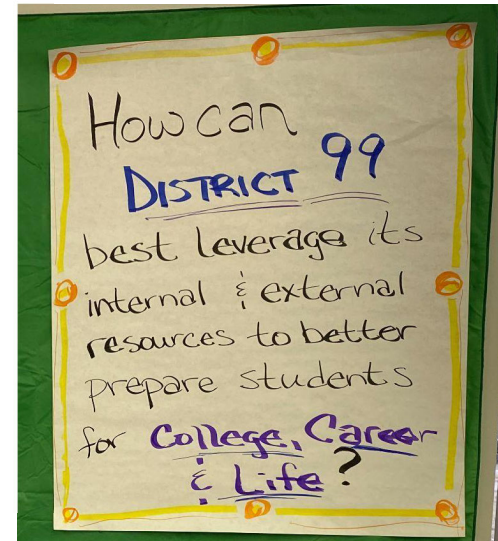 How can
DISTRICT 99
best leverage its
internal & external
resources to better
prepare students
for College, Career
& Life?